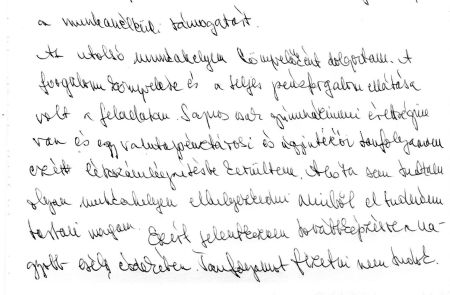 a munkanélküli támogatást.
Az utolsó munkahelyem könyvelőként dolgoztam. A
forgalom könyvelése és a teljes pénzforgalom ellátása
volt a feladatom. Sajnos csak gimnáziumi érettségim
van és egy valutapénztárosi és ügyintézői tanfolyamom
ezért létszámleépítésbe kerültem. Azóta sem tudtam
olyan munkahelyen elhelyezkedni amiből el tudnám
tartani magam. Ezért jelentkezem továbbképzésre na-
gyobb esély érdekében. Tanfolyamot fizetni nem tudok.